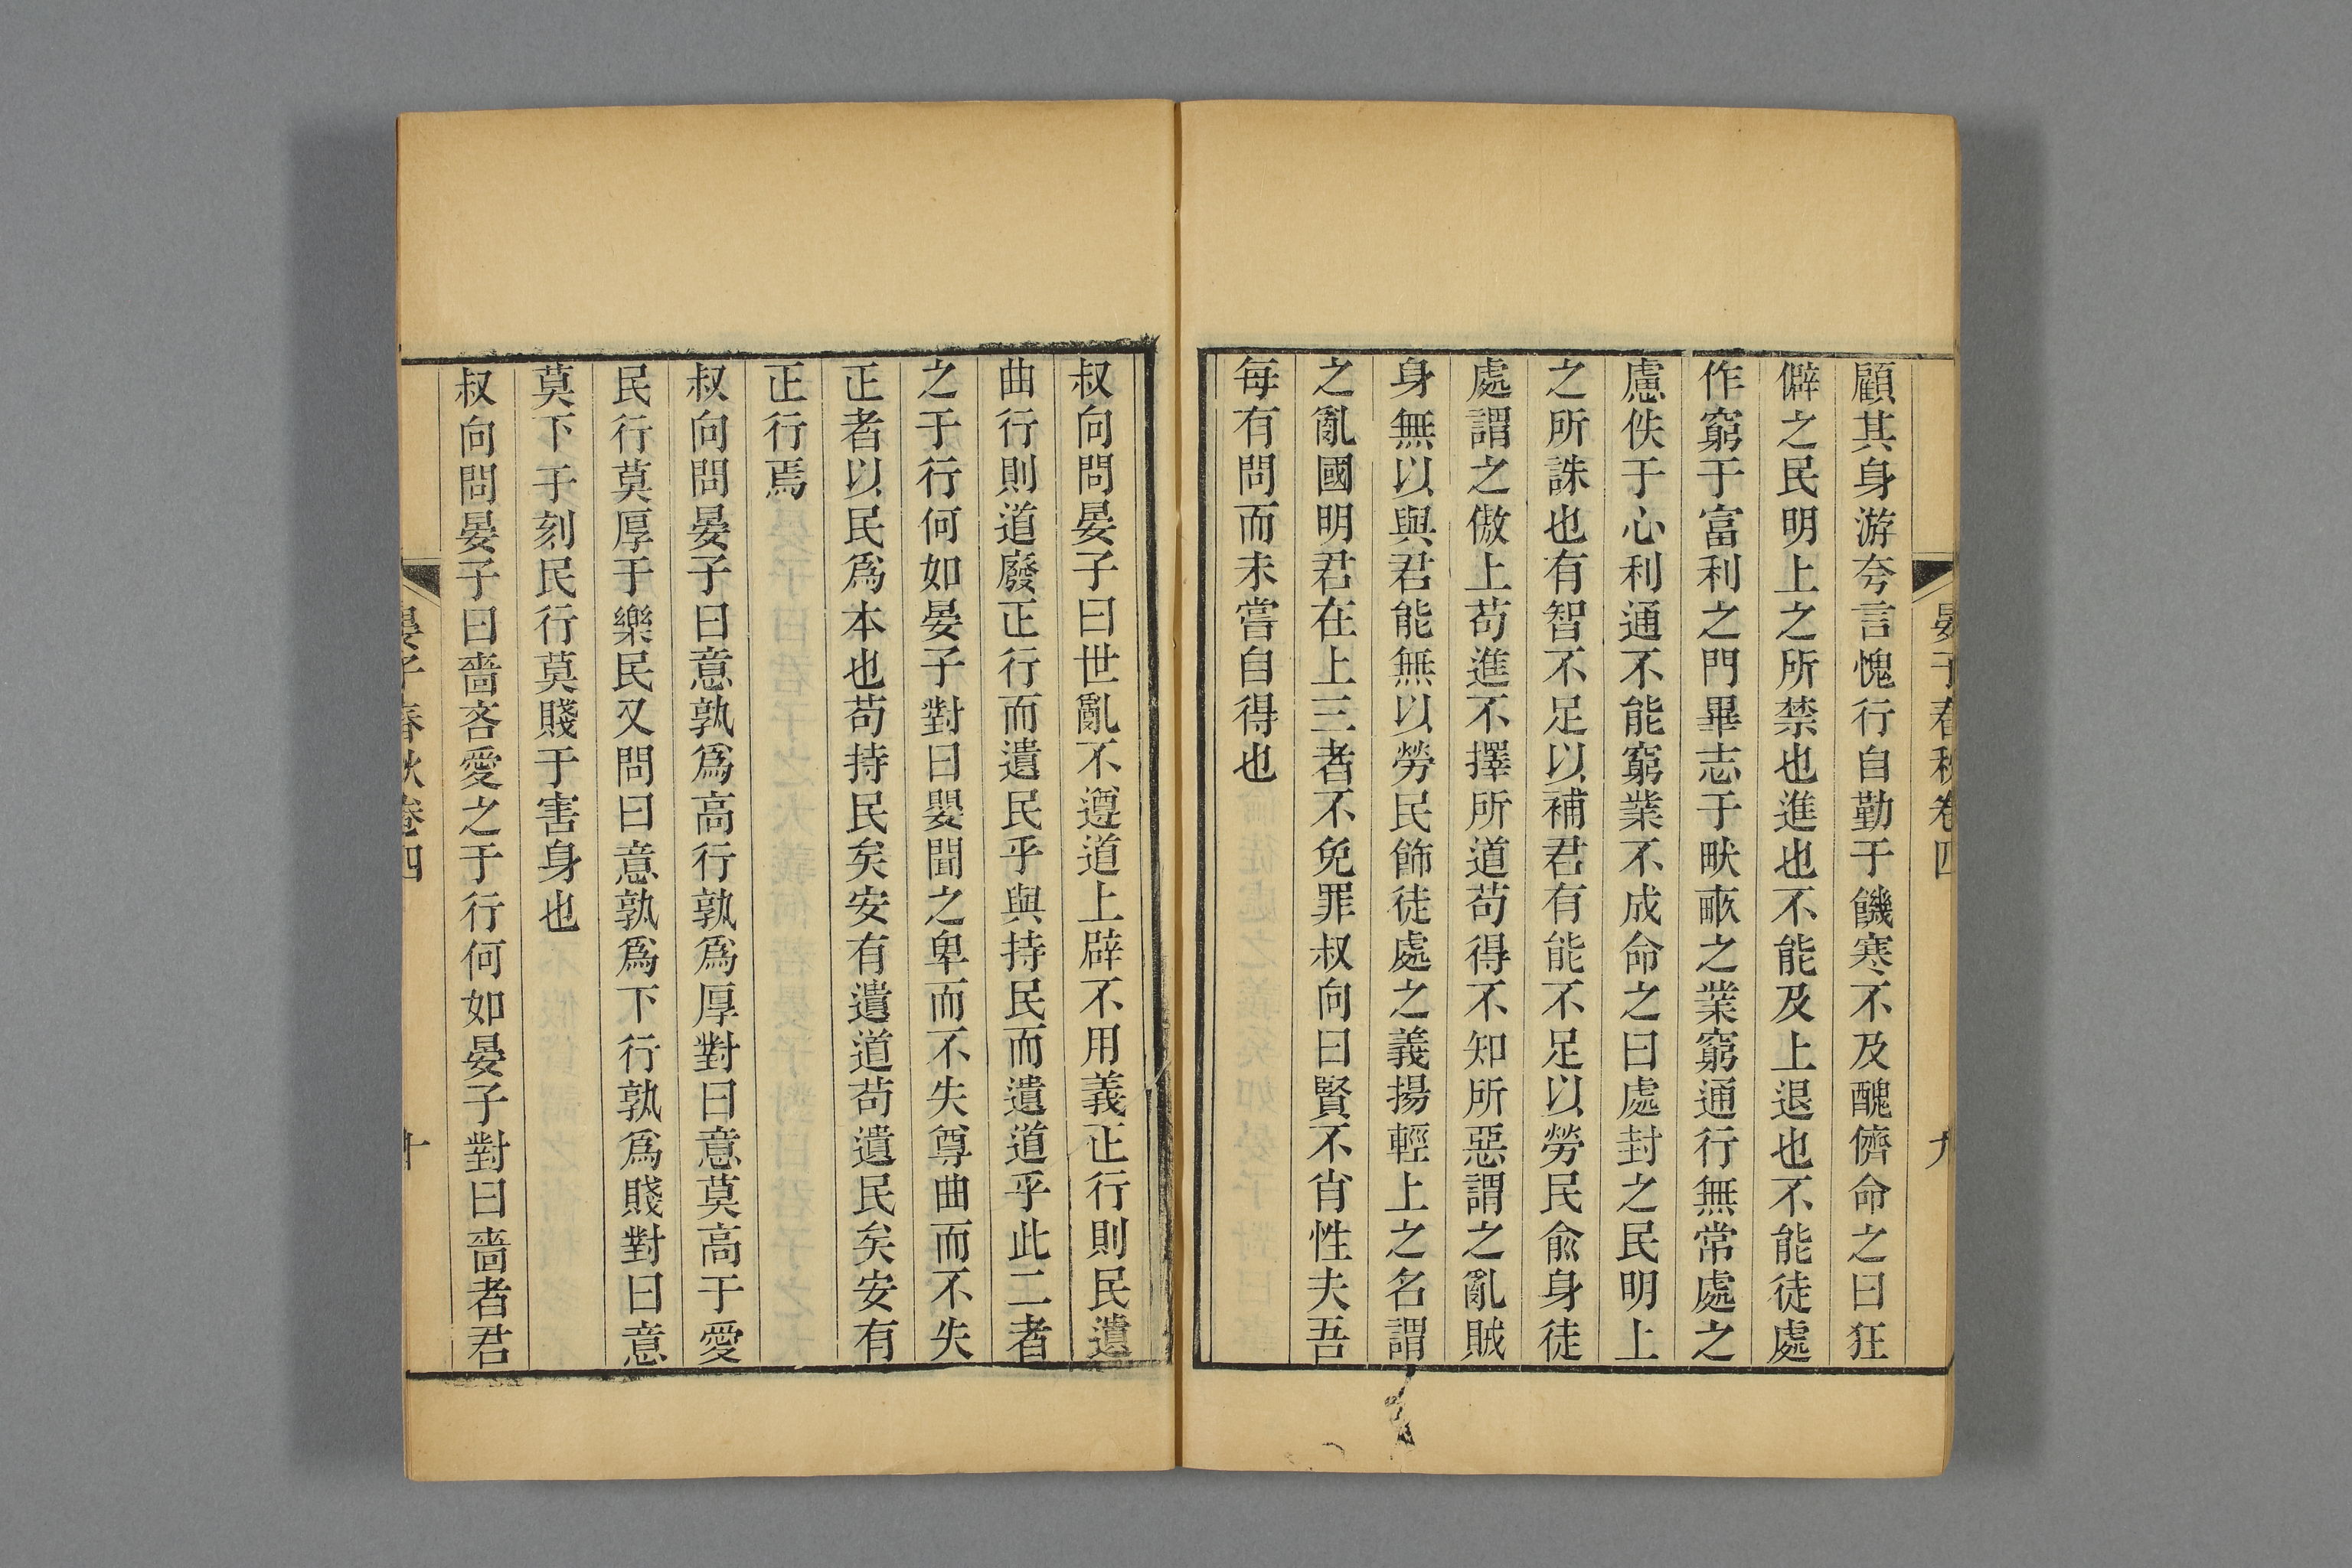 晏子春秋卷四
九
顧其身游夸言愧行自勤于饑寒不及醜儕命之曰狂
僻之民明上之所禁也進也不能及上退也不能徒處
作窮于富利之門畢志于畎畝之業窮通行無常處之
慮佚于心利通不能窮業不成命之曰處封之民明上
之所誅也有智不足以補君有能不足以勞民俞身徒
處謂之傲上苟進不擇所道苟得不知所惡謂之亂賊
身無以與君能無以勞民飾徒處之義揚輕上之名謂
之亂國明君在上三者不免罪叔向曰賢不肖性夫吾
每有問而未嘗自得也
叔向問晏子曰世亂不遵道上辟不用義正行則民遺
曲行則道廢正行而遺民乎與持民而遺道乎此二者
之于行何如晏子對曰嬰聞之卑而不失尊曲而不失
正者以民爲本也苟持民矣安有遺道苟遺民矣安有
正行焉
叔向問晏子曰意孰爲高行孰爲厚對曰意莫高于愛
民行莫厚于樂民又問曰意孰爲下行孰爲賤對曰意
莫下于刻民行莫賤于害身也
叔向問晏子曰嗇吝愛之于行何如晏子對曰嗇者君
晏子春秋卷四
十